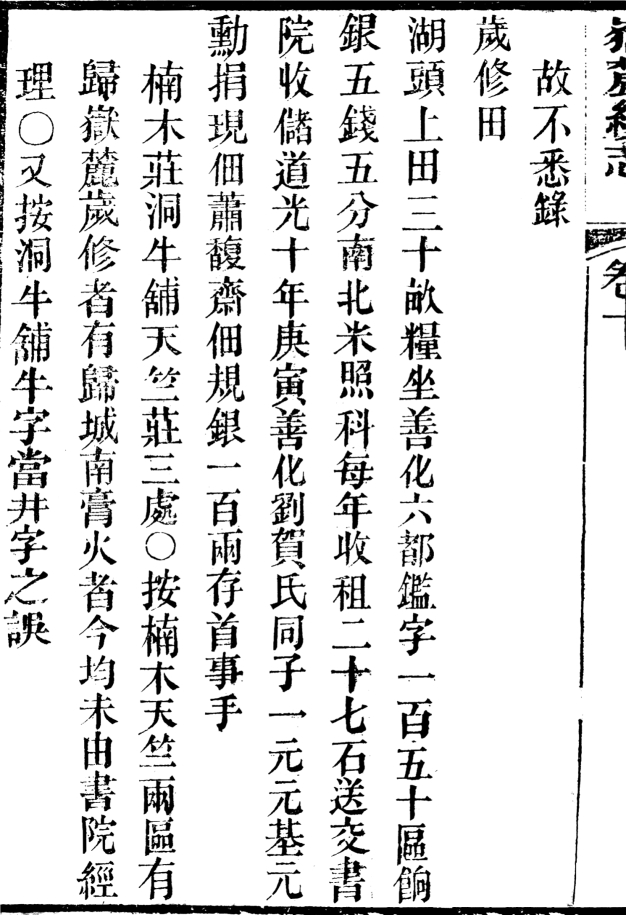 嶽麓續志
卷十
故不悉錄
歲修田
湖頭上田三十畝糧坐善化六都鑑字一百五十區餉
銀五錢五分南北米照科每年收租二十七石送交書
院收儲道光十年庚寅善化劉賀氏同子一元元基元
勳捐現佃蕭馥齋佃規銀一百兩存首事手
楠木莊洞牛舖天竺莊三處○按楠木天竺兩區有
歸嶽麓歲修者有歸城南膏火者今均未由書院經
理○又按洞牛舖牛字當井字之誤